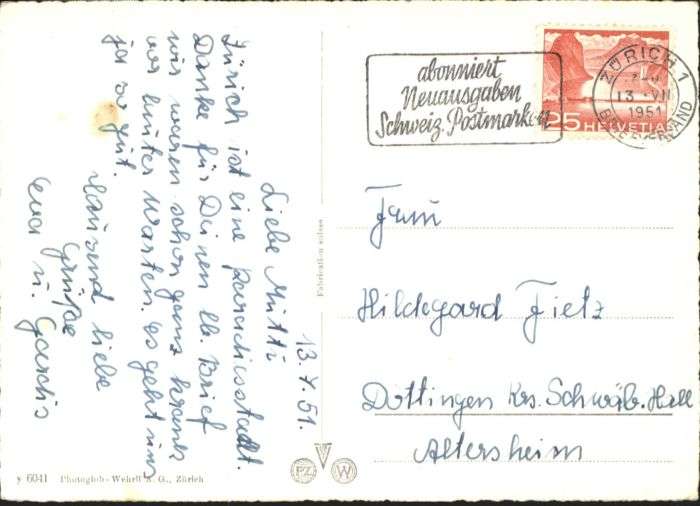 13.7.51.
Liebe Mutti
Zürich ist eine Paradiesstadt.
Danke für Deinen lb. Brief
wir waren schon ganz krank
vor lauter Warten. Es geht uns
ja so gut.
Tausend liebe
Grüße
Eva u.
abonniert
Neuausgaben
Schweiz. Postmarken
ZÜRICH 1
13. VII
1951
BRIEFVERSAND
25 HELVETIA
Frau
Hildegard Fietz
Döttingen Krs. Schwäb. Hall
Altersheim
Fabrication suisse
PZ W
y 6041 Photoglob-Wehrli A. G., Zürich